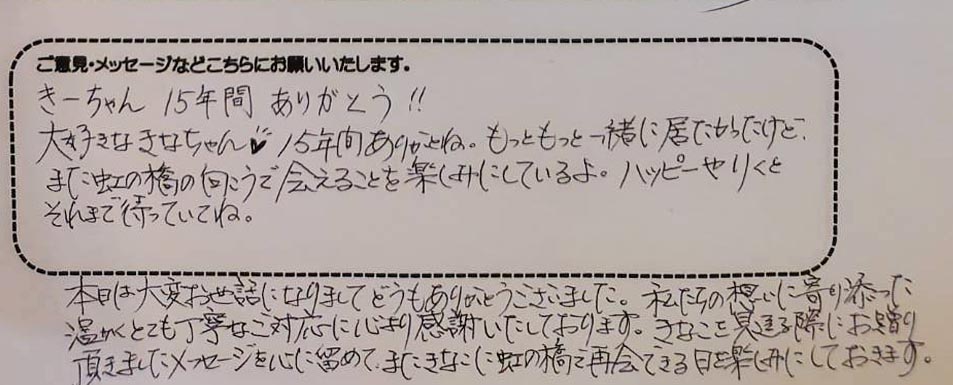 ご意見・メッセージなどこちらにお願いいたします。
きーちゃん 15年間 ありがとう!!
大好きなきなちゃん♥ 15年間ありがとね。もっともっと一緒に居たかったけど、
また虹の橋の向こうで会えることを楽しみにしているよ。ハッピーやりくと
それまで待っていてね。
本日は大変お世話になりましてどうもありがとうございました。私たちの想いに寄り添った
温かくとても丁寧なご対応に心より感謝いたしております。きなこを見送る際にお贈り
頂きましたメッセージを心に留めて、またきなこに虹の橋で再会できる日を楽しみにしておきます。